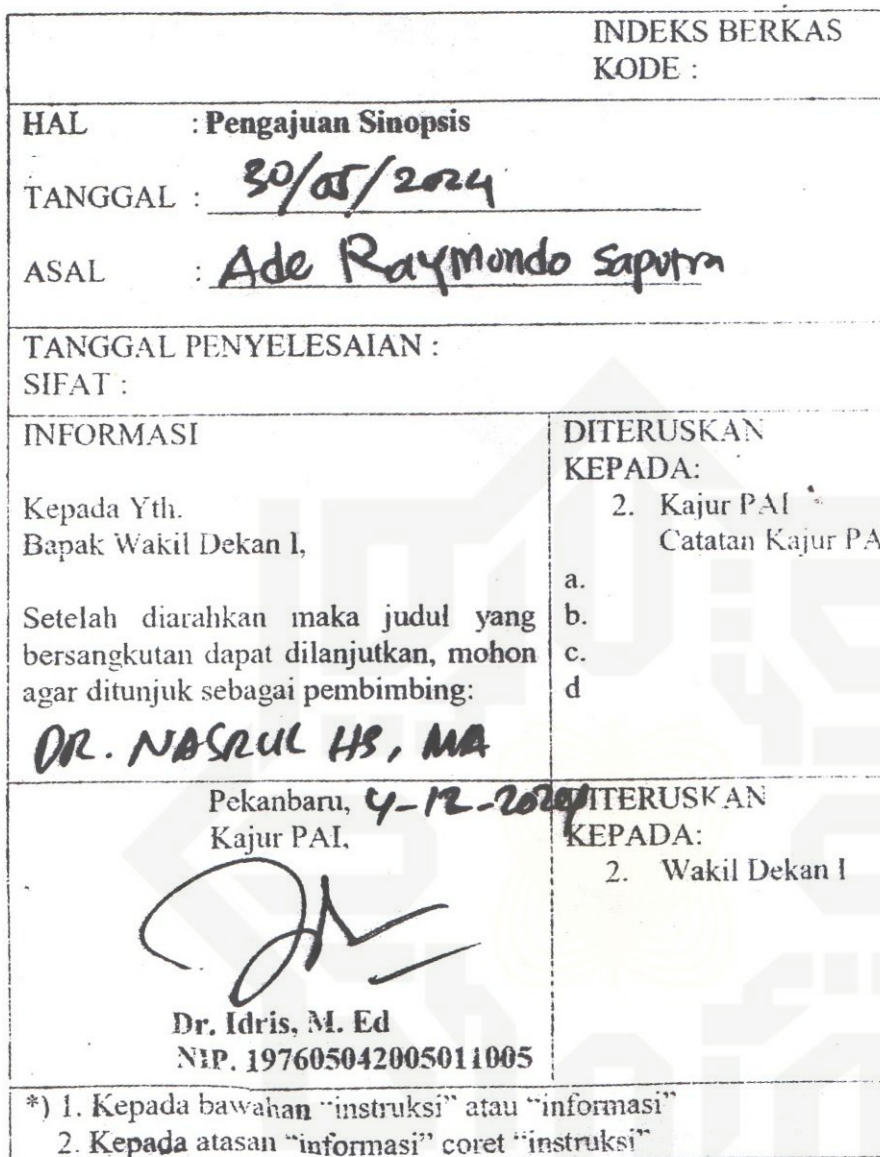 INDEKS BERKAS
KODE :
HAL : Pengajuan Sinopsis
TANGGAL : 30/05/2024
ASAL : Ade Raymondo Saputra
TANGGAL PENYELESAIAN :
SIFAT :
INFORMASI
Kepada Yth.
Bapak Wakil Dekan I,
Setelah diarahkan maka judul yang
bersangkutan dapat dilanjutkan, mohon
agar ditunjuk sebagai pembimbing:
DR. NASRUL HS, MA
DITERUSKAN
KEPADA:
2. Kajur PAI
Catatan Kajur PA
a.
b.
c.
d
Pekanbaru, 4-12-2024
Kajur PAI,
Dr. Idris, M. Ed
NIP. 197605042005011005
DITERUSKAN
KEPADA:
2. Wakil Dekan I
*) 1. Kepada bawahan "instruksi" atau "informasi"
2. Kepada atasan "informasi" coret "instruksi"